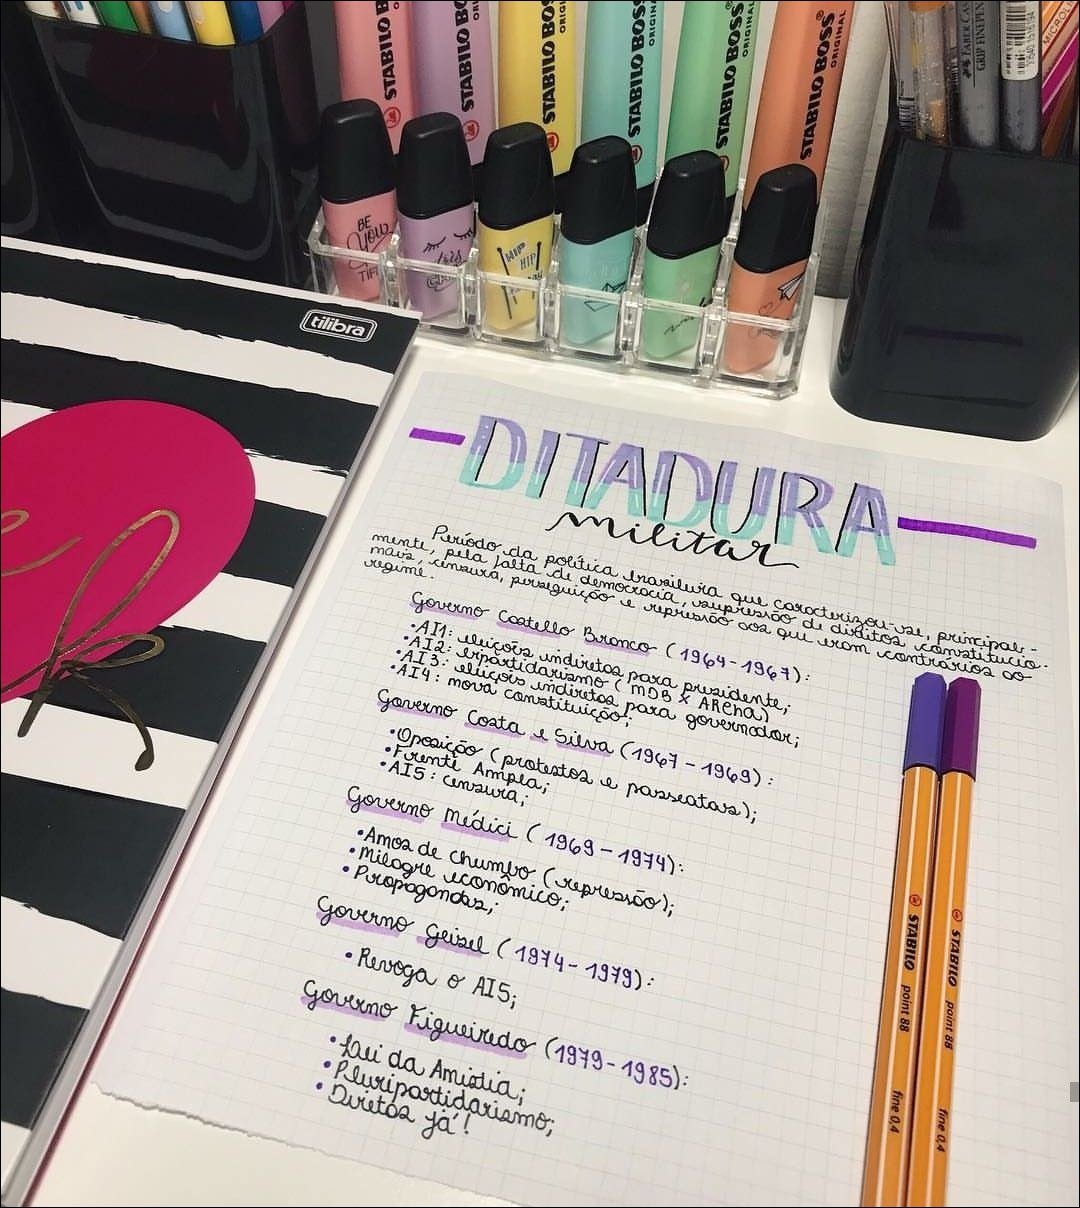 STABILO BOSS ORIGINAL
STABILO BOSS ORIGINAL
STABILO BOSS ORIGINAL
STABILO BOSS ORIGINAL
STABILO BOSS ORIGINAL
STABILO BOSS ORIGINAL
FABER-CASTELL
GRIP FINEPEN
BE
YOU
HIP
HIP
tilibra
DITADURA
militar
Período da política brasileira que caracterizou-se, principal-
mente, pela falta de democracia, supressão de direitos constitucio-
mais, censura, perseguição e repressão aos que eram contrários ao
regime.
Governo Castello Branco (1964-1967):
•AI1: eleições indiretas para presidente;
•AI2: bipartidarismo (MDB x ARENA)
•AI3: eleições indiretas para governador;
•AI4: nova constituição;
Governo Costa e Silva (1967-1969):
•Oposição (protestos e passeatas);
•Frente Ampla;
•AI5: censura;
Governo Médici (1969-1974):
•Anos de Chumbo (repressão);
•Milagre econômico;
•Propagandas;
Governo Geisel (1974-1979):
•Revoga o AI5;
Governo Figueiredo (1979-1985):
•Lei da Anistia;
•Pluripartidarismo;
•Diretas já!
STABILO point 88 fine 0,4
STABILO point 88 fine 0,4